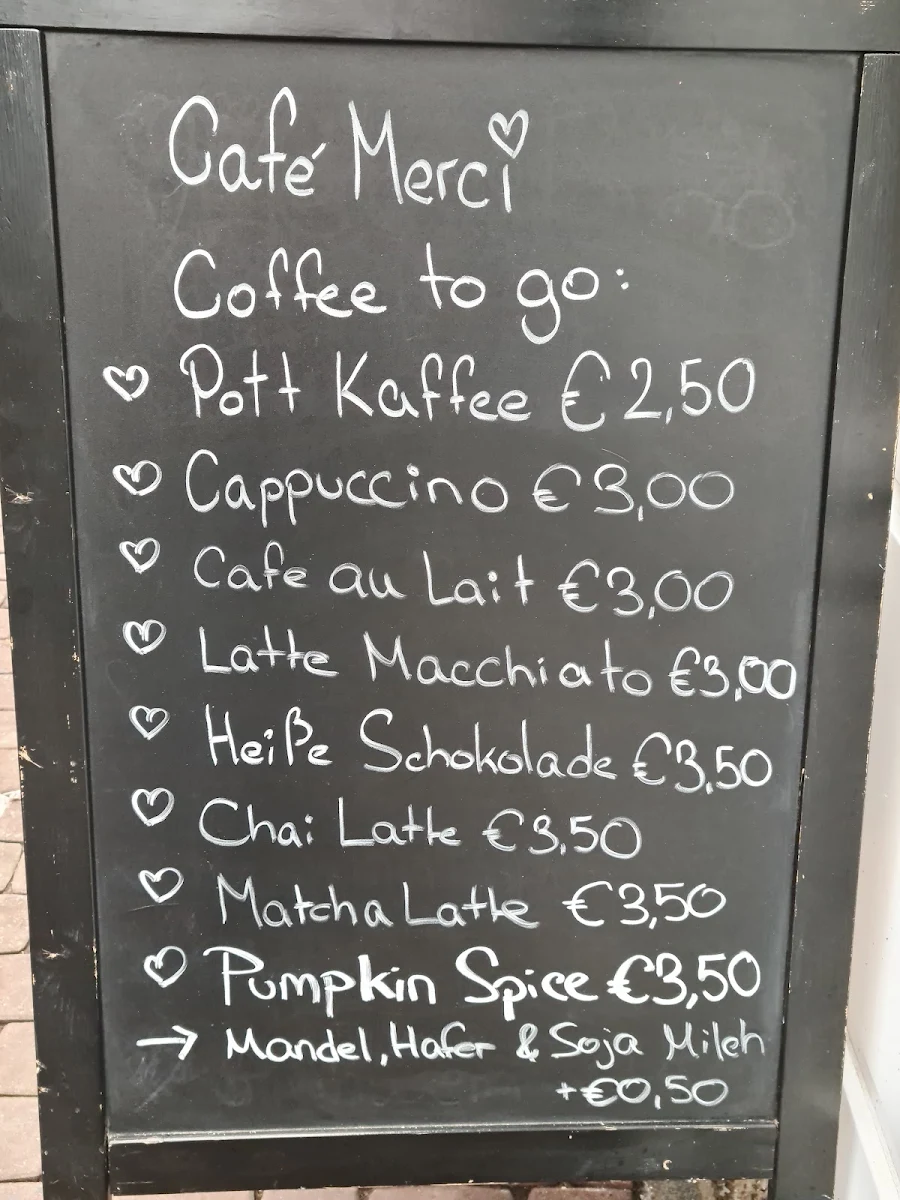 Café Merci
Coffee to go:
Pott Kaffee €2,50
Cappuccino €3,00
Cafe au Lait €3,00
Latte Macchiato €3,00
Heiße Schokolade €3,50
Chai Latte €3,50
Matcha Latte €3,50
Pumpkin Spice €3,50
→ Mandel, Hafer & Soja Milch
+€0,50